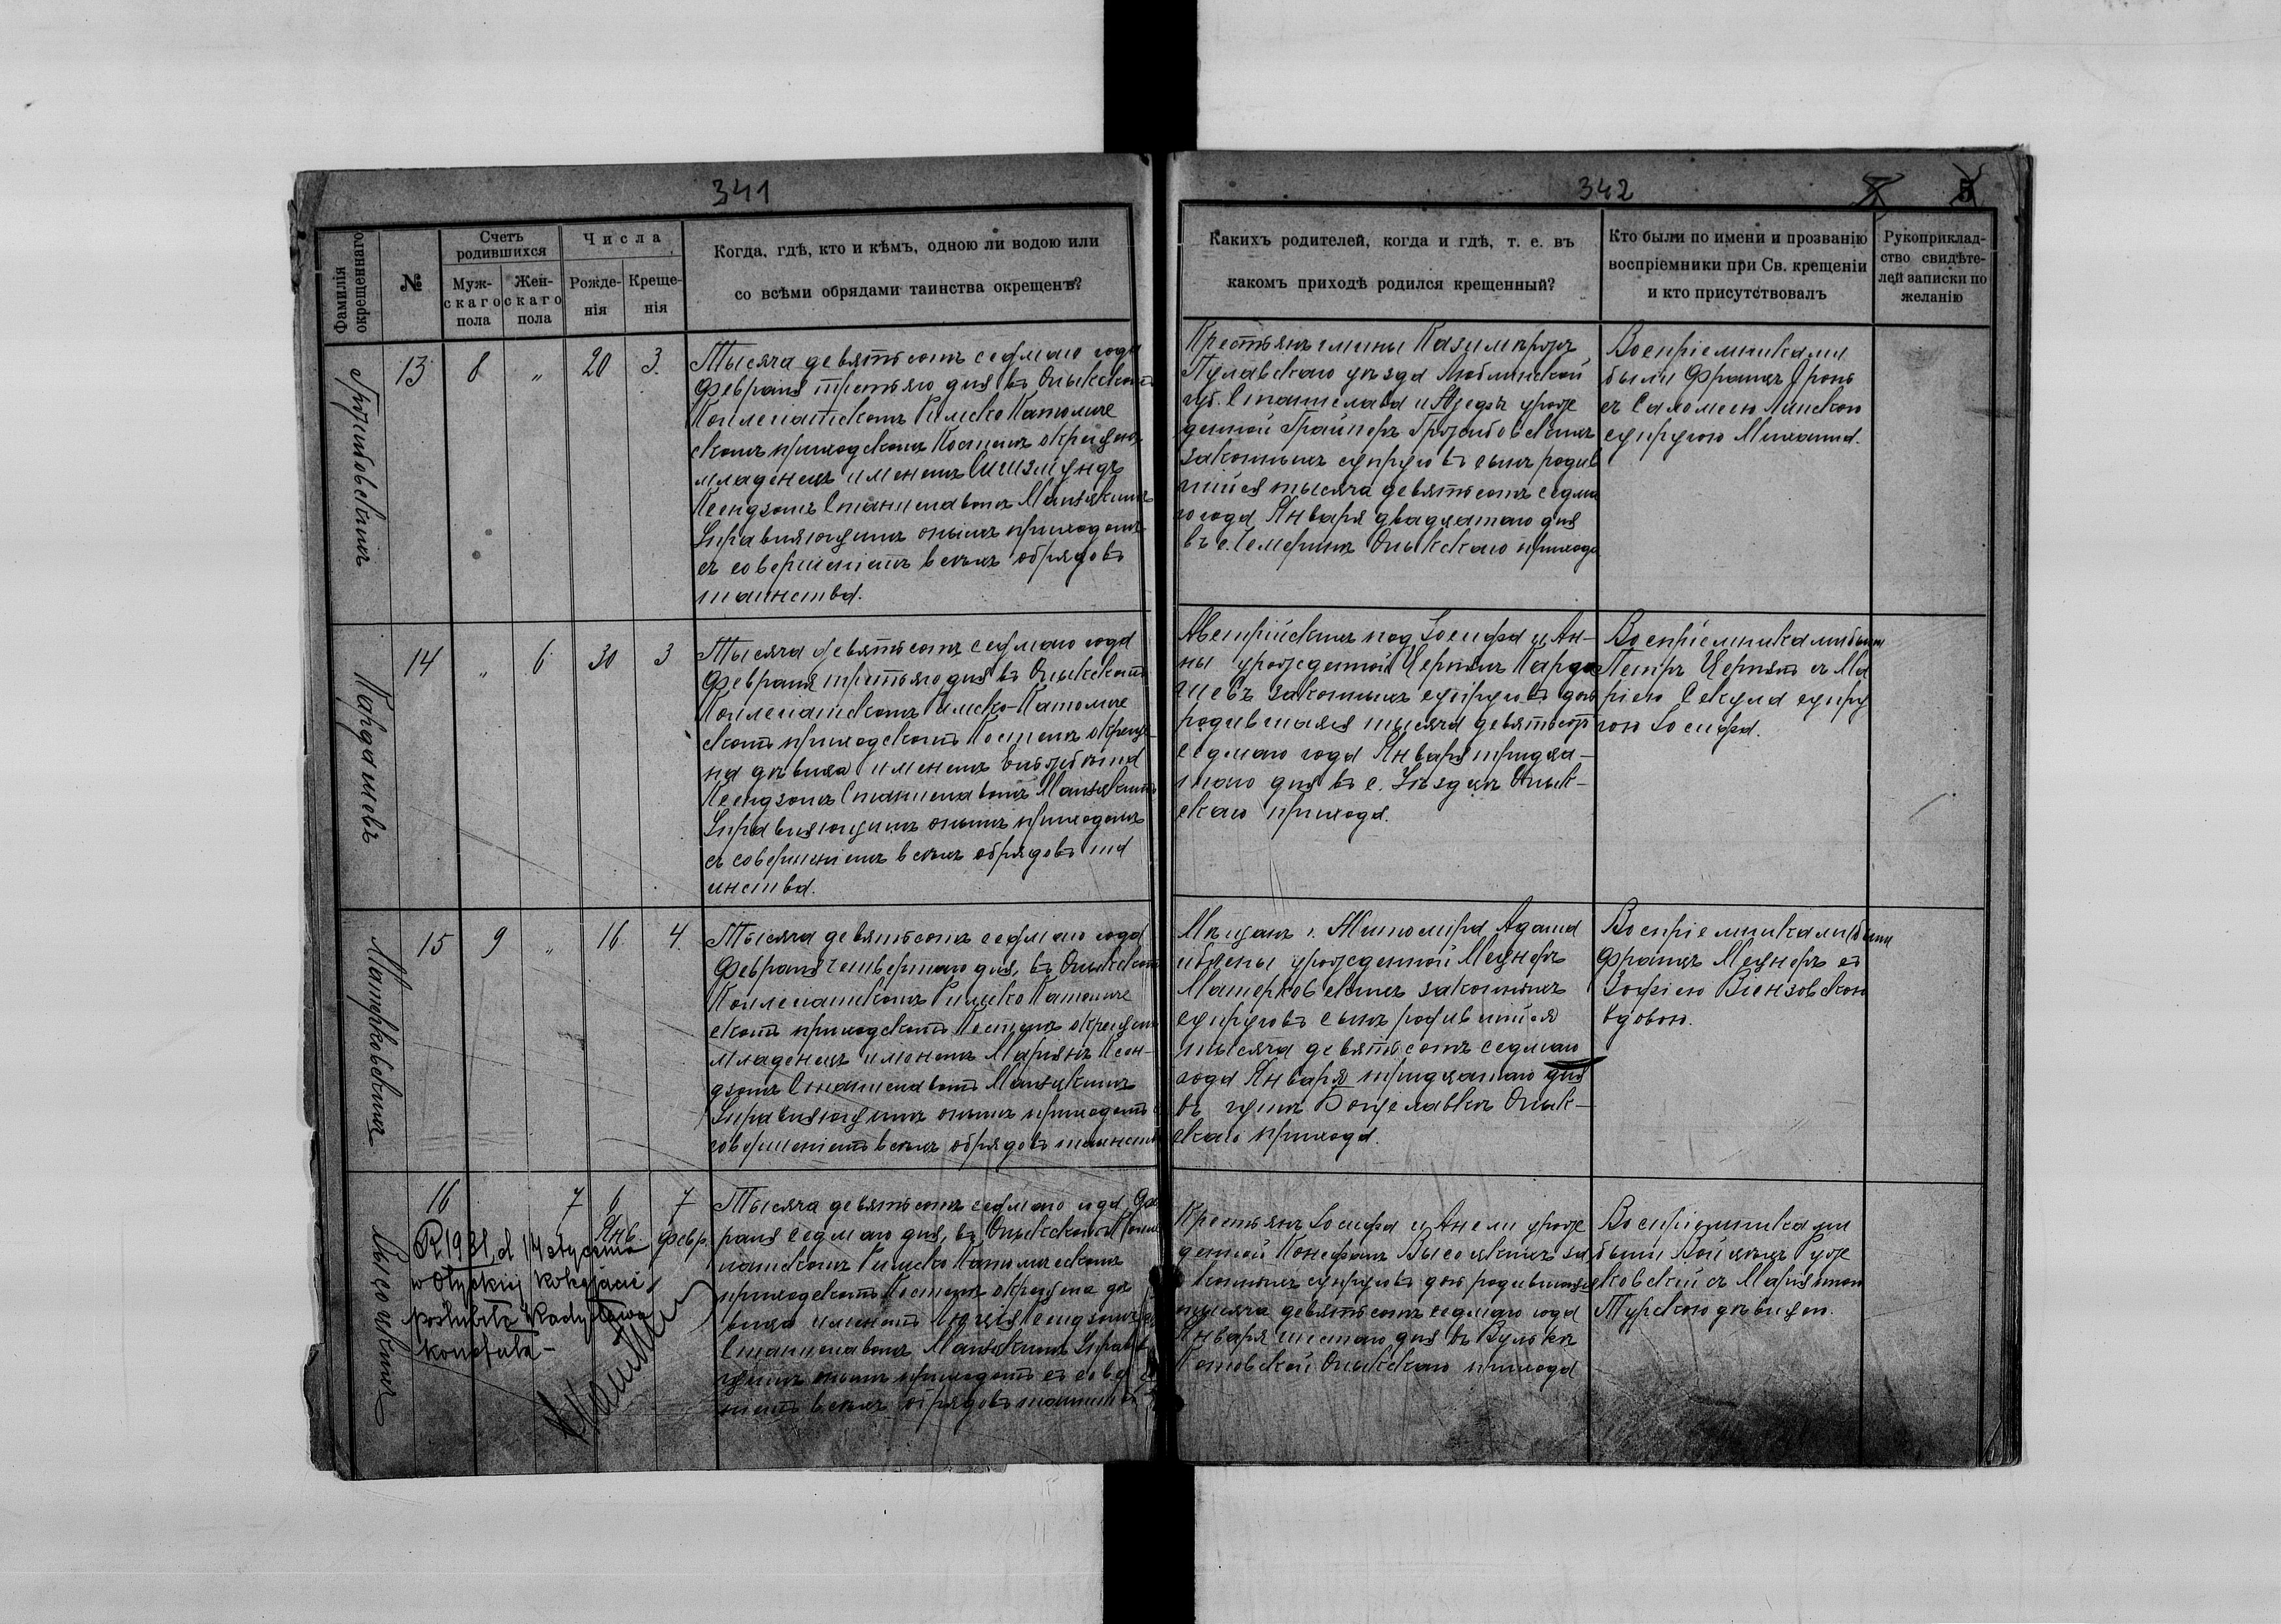 341
342
5
Фамилія окрещеннаго
№
Счетъ родившихся
Муж-скаго пола
Жен-скаго пола
Числа
Рожде-нія
Креще-нія
Когда, гдѣ, кто и кѣмъ, одною ли водою или
со всѣми обрядами таинства окрещенъ?
Какихъ родителей, когда и гдѣ, т. е. въ
какомъ приходѣ родился крещенный?
Кто были по имени и прозванію
воспріемники при Св. крещеніи
и кто присутствовалъ
Рукоприклад-
ство свидѣте-
лей записки по
желанію
13 8 „ 20 3.
Тысяча девятьсотъ седмаго года
Февраля третьяго дня въ Олыкскомъ
Коллегіатскомъ Римско Католиче
скомъ приходскомъ Костелѣ окрещенъ
младенецъ именемъ
Ксендзомъ Станиславомъ
Управляющимъ онымъ приходомъ
съ совершеніемъ всѣхъ обрядовъ
таинства.
Крестьянъ гмины Казимѣржъ
Пулавскаго уѣзда Люблинской
губ. Станислава и урож
денной Гржибовскихъ
законныхъ супруговъ сынъ родив
шійся тысяча девятьсотъ седма
го года Января двадцатаго дня
въ с. Олыкскаго прихода
Воспріемниками
были Францъ
съ Саломеею Липскою
супругою Михаила.
14 „ 6 30 3
Тысяча девятьсотъ седмаго года
Февраля третьяго дня въ Олыкскомъ
Коллегіатскомъ Римско-Католиче
скомъ приходскомъ Костелѣ окреще-
на дѣвица именемъ
Ксендзомъ Станиславомъ
Управляющимъ онымъ приходомъ
съ совершеніемъ всѣхъ обрядовъ та
инства.
Австрійскихъ под. Іосифа и Ан-
ны урожденной
законныхъ супруговъ дочь
родившаяся тысяча девятьсотъ
седмаго года Января тридца-
таго дня въ с. Олык-
скаго прихода.
Воспріемниками были
Петръ съ Ма
ріею Секула супру
гою Іосифа.
Матерковскихъ
15 9 „ 16 4
Тысяча девятьсотъ седмаго года
Февраля четвертаго дня, въ Олыкскомъ
Коллегіатскомъ Римско Католиче
скомъ приходскомъ Костелѣ окрещенъ
младенецъ именемъ Марьянъ Ксен-
дзомъ Станиславомъ
Управляющимъ онымъ приходомъ съ
совершеніемъ всѣхъ обрядовъ таинства
Мѣщанъ г. Житоміра Адама
и урожденной Мецнеръ
Матерковскихъ законныхъ
супруговъ сынъ родившійся
тысяча девятьсотъ седмаго
года Января тридцатаго дня
въ Олык-
скаго прихода.
Воспріемниками были
Францъ Мецнеръ съ
Зофіею
вдовою.
Высоцкихъ
16 7 6 7
Янв. февр.
R. 1931, d. 14 stycznia
w Ołyckiej kolegjacie
poślubiła Władysława
Тысяча девятьсотъ седмаго года Фев
раля седмаго дня, въ Олыкскомъ Колле
гіатскомъ Римско Католическомъ
приходскомъ Костелѣ окрещена дѣ
вица именемъ Ксендзомъ
Станиславомъ
онымъ приходомъ съ
всѣхъ обрядовъ таинства
Крестьянъ Іосифа и Анели урож
денной Высоцкихъ за
конныхъ супруговъ дочь родившаяся
тысяча девятьсотъ седмаго года
Января шестаго дня въ Вулькѣ
Котовской Олыкскаго прихода
Воспріемниками
были Войцѣхъ
съ Маріянною
Турскою дѣвицею.